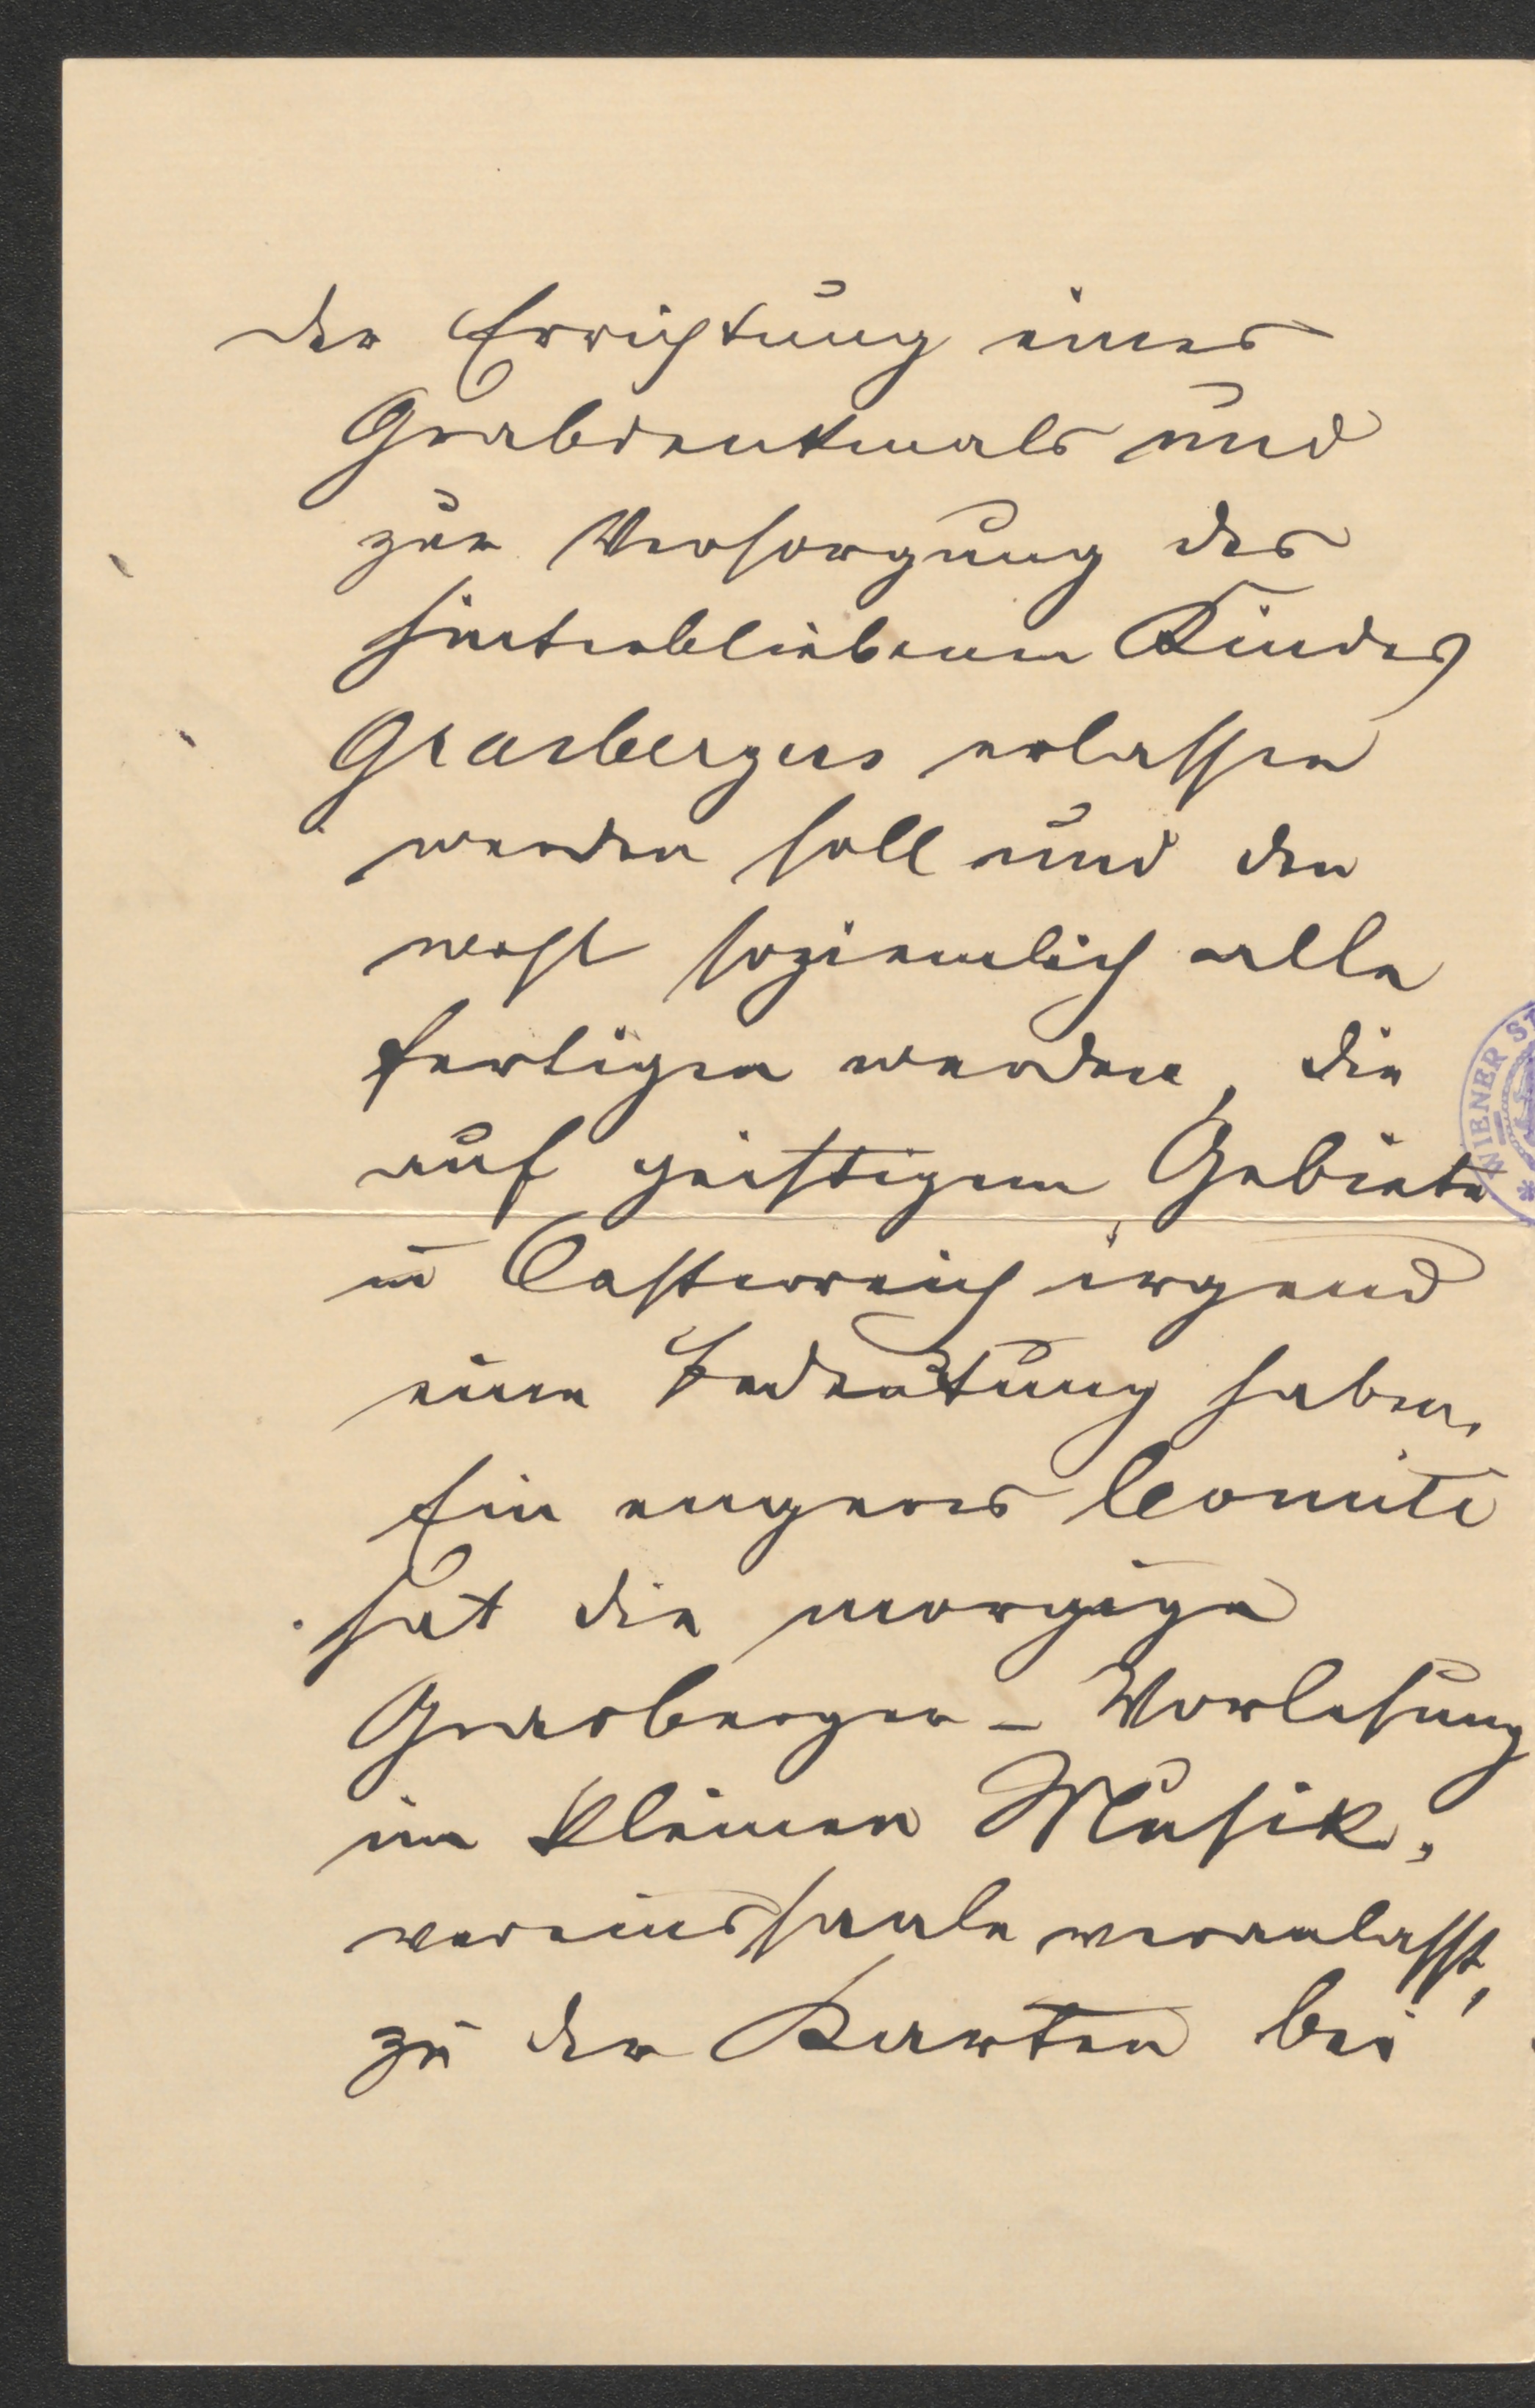 der Errichtung eines
Grabdenkmals und
zur Versorgung des
hinterbliebenen Kindes
Grasbergers erlassen
werden soll und den
wohl soziemlich alle
fertigen werden, die
auf geistigem Gebiete
in Oesterreich irgend
eine Bedeutung haben.
Ein engeres Comité
hat die morgige
Grasberger-Vorlesung
im kleinen Musik-
vereinssaale veranlasst,
zu der Karten bei
WIENER ST